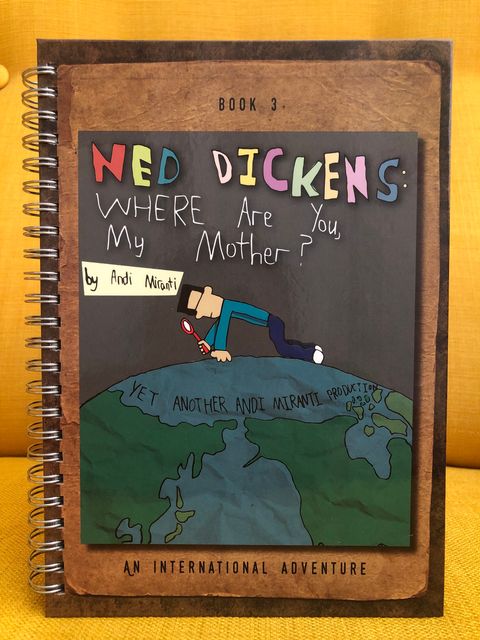 BOOK 3
NED DICKENS:
WHERE Are You,
My Mother?
by Andi Miranti
YET ANOTHER ANDI MIRANTI PRODUCTION
AN INTERNATIONAL ADVENTURE